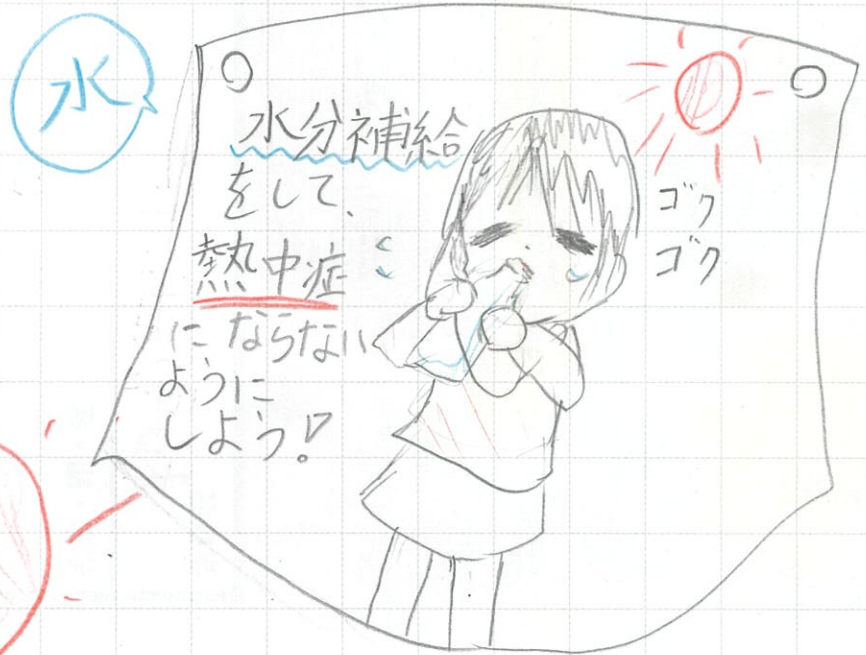 水
水分補給
をして、
熱中症
にならない
ように
しよう!
ゴク
ゴク